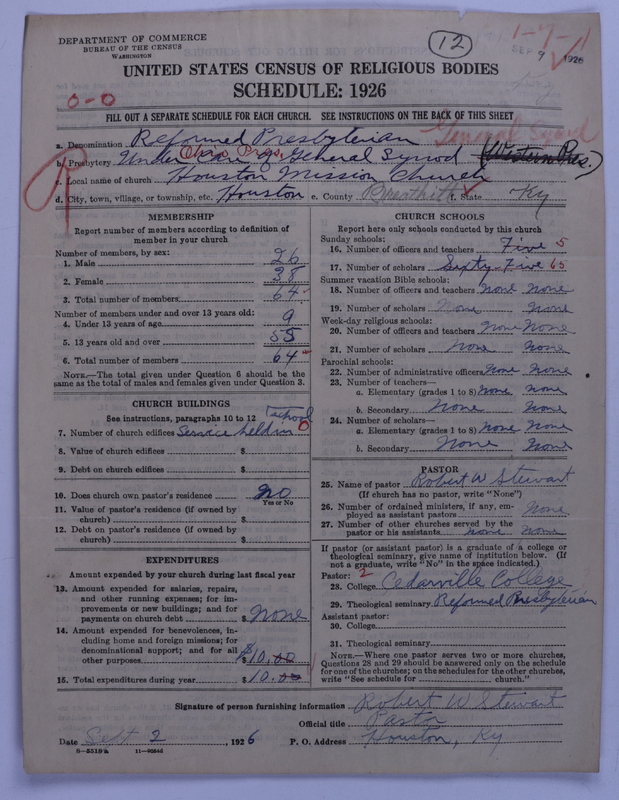 DEPARTMENT OF COMMERCE
BUREAU OF THE CENSUS
WASHINGTON
12
1-7-1
SEP 9 1926
UNITED STATES CENSUS OF RELIGIOUS BODIES
SCHEDULE: 1926
0-0
FILL OUT A SEPARATE SCHEDULE FOR EACH CHURCH. SEE INSTRUCTIONS ON THE BACK OF THIS SHEET
a. Denomination Reformed Presbyterian General Synod
Ohio Presy.
b. Presbytery Under Care of General Synod (Western Pres.)
c. Local name of church Houston Mission Church
d. City, town, village, or township, etc. Houston e. County Breathitt f. State Ky
R
MEMBERSHIP
Report number of members according to definition of
member in your church
Number of members, by sex:
1. Male 26
2. Female 38
3. Total number of members 64
Number of members under and over 13 years old:
4. Under 13 years of age 9
5. 13 years old and over 55
6. Total number of members 64
NOTE.—The total given under Question 6 should be the
same as the total of males and females given under Question 3.
CHURCH BUILDINGS
See instructions, paragraphs 10 to 12 school
7. Number of church edifices Service held in 0
8. Value of church edifices $
9. Debt on church edifices $
10. Does church own pastor's residence No
Yes or No
11. Value of pastor's residence (if owned by
church) $
12. Debt on pastor's residence (if owned by
church) $
EXPENDITURES
Amount expended by your church during last fiscal year
13. Amount expended for salaries, repairs,
and other running expenses; for im-
provements or new buildings; and for
payments on church debt $ None
14. Amount expended for benevolences, in-
cluding home and foreign missions; for
denominational support; and for all
other purposes $10.00
15. Total expenditures during year $10.00
CHURCH SCHOOLS
Report here only schools conducted by this church
Sunday schools:
16. Number of officers and teachers Five 5
17. Number of scholars Sixty-Five 65
Summer vacation Bible schools:
18. Number of officers and teachers None None
19. Number of scholars None None
Week-day religious schools:
20. Number of officers and teachers None None
21. Number of scholars None None
Parochial schools:
22. Number of administrative officers None None
23. Number of teachers—
a. Elementary (grades 1 to 8) None None
b. Secondary None None
24. Number of scholars—
a. Elementary (grades 1 to 8) None None
b. Secondary None None
PASTOR
25. Name of pastor Robert W Stewart
(If church has no pastor, write "None")
26. Number of ordained ministers, if any, em-
ployed as assistant pastors None
27. Number of other churches served by the
pastor or his assistants None None
If pastor (or assistant pastor) is a graduate of a college or
theological seminary, give name of institution below. (If
not a graduate, write "No" in the space indicated.)
Pastor: 2
28. College Cedarville College
29. Theological seminary Reformed Presbyterian
Assistant pastor:
30. College
31. Theological seminary
NOTE.—Where one pastor serves two or more churches,
Questions 28 and 29 should be answered only on the schedule
for one of the churches; on the schedules for the other churches,
write "See schedule for church."
Signature of person furnishing information Robert W Stewart
Official title Pastor
Date Sept 2, 1926 P. O. Address Houston, Ky
8-5519a 11-9054d